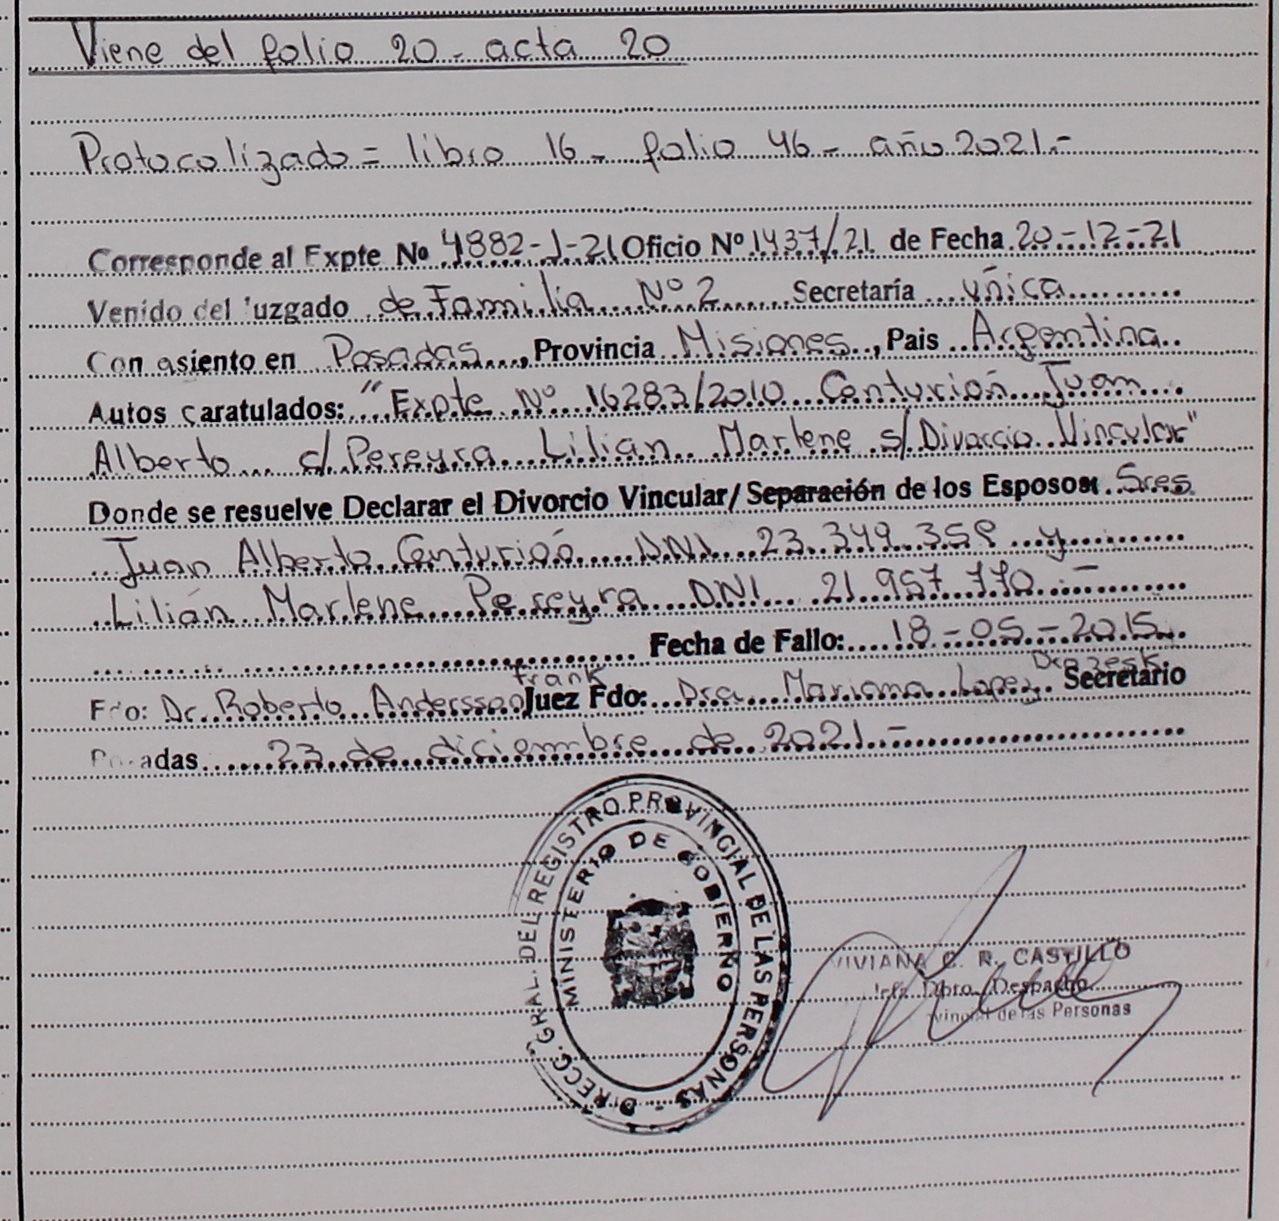 Viene del folio 20 - acta 20
Protocolizado = libro 16 - folio 46 - año 2021.-
Corresponde al Expte Nº 4882-J-21 Oficio Nº 1437/21 de Fecha 20-12-21
Venido del Juzgado de Familia Nº 2 Secretaría única
Con asiento en Posadas, Provincia Misiones, Pais Argentina
Autos caratulados: "Expte Nº 16283/2010 Centurión Juan
Alberto c/ Pereyra Lilian Marlene s/ Divorcio Vincular"
Donde se resuelve Declarar el Divorcio Vincular/ Separación de los Esposos: Sres
Juan Alberto Centurión DNI 23.349.359 y
Lilián Marlene Pereyra DNI 21.957.770.-
Fecha de Fallo: 18-05-2015
Frank
Fdo: Dr. Roberto Andersson Juez Fdo: Dra. Mariana Lopez Secretario
Posadas 23 de diciembre de 2021.-
DIRECC. GRAL. DEL REGISTRO PROVINCIAL DE LAS PERSONAS
MINISTERIO DE GOBIERNO
VIVIANA C. R. CASTILLO
Jefe Dpto. Despacho
de las Personas